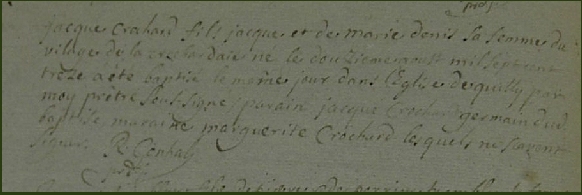 jacque crohard fils jacque et de marie denis sa femme du
village de la crochardaie ne le douzieme aoust mil sept cent
treze a été baptisé le même jour dans l'église de quilly par
moy prètre soussigné parain jacque Crochard germain dud
baptisé maraine marguerite Crochard lesquels ne scavent
signer